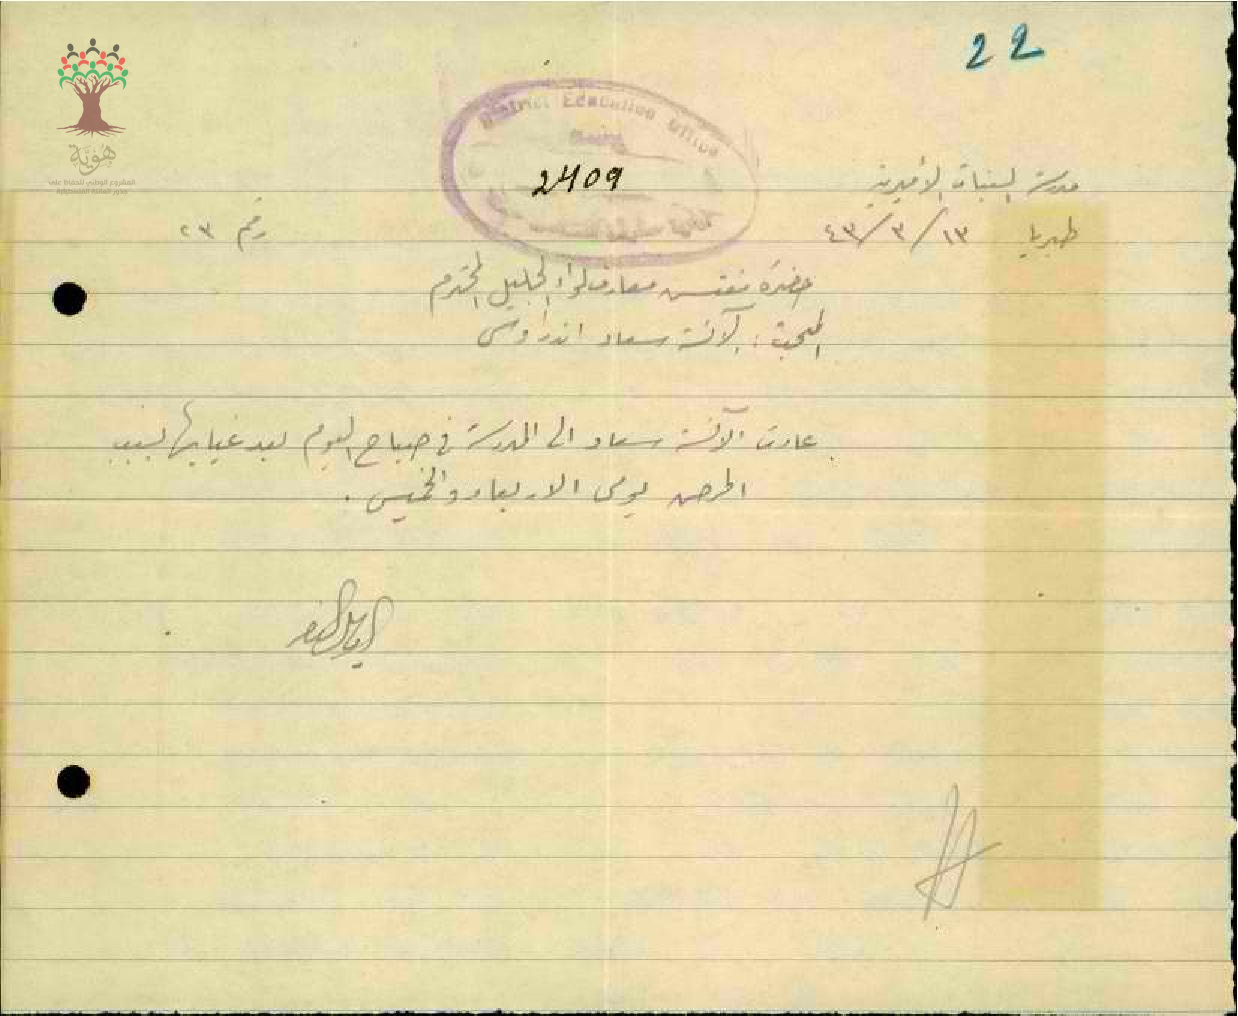 22
هوية
المشروع الوطني للحفاظ على
جذور العائلة الفلسطينية
District Education Office
2409
مدرسة البنات الأميرية
طبريا ١٣/٣/٤٣ رقم ٢٣
حضرة مفتش معارف لواء الجليل المحترم
المبحث: الآنسة سعاد اندراوس
عادت الآنسة سعاد الى المدرسة في صباح اليوم بعد غيابها بسبب
المرض يومي الاربعاء والخميس.